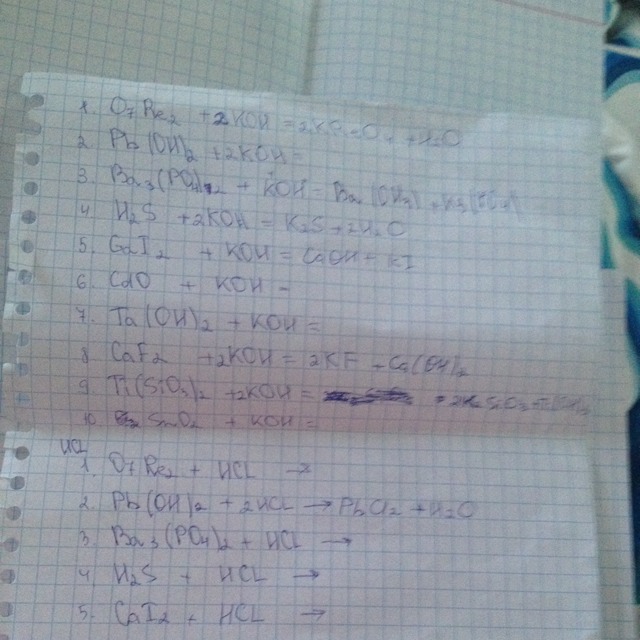 1. O7Re2 + 2KOH = 2K + H2O
2. Pb(OH)2 + 2KOH =
3. Ba3(PO4)2 + KOH = Ba(OH)
4. H2S + 2KOH = K2S + 2H2O
5. CaI2 + KOH = CaOH =
6. CdO + KOH =
7. Ta(OH)2 + KOH =
8. CaF2 + 2KOH = 2KF + Ca(OH)2
9. Ti(SiO3)2 + 2KOH =
10. + KOH =
HCL
1. O7Re2 + HCL →
2. Pb(OH)2 + 2HCL → PbCl2 + H2O
3. Ba3(PO4)2 + HCL →
4. H2S + HCL →
5. CaI2 + HCL →